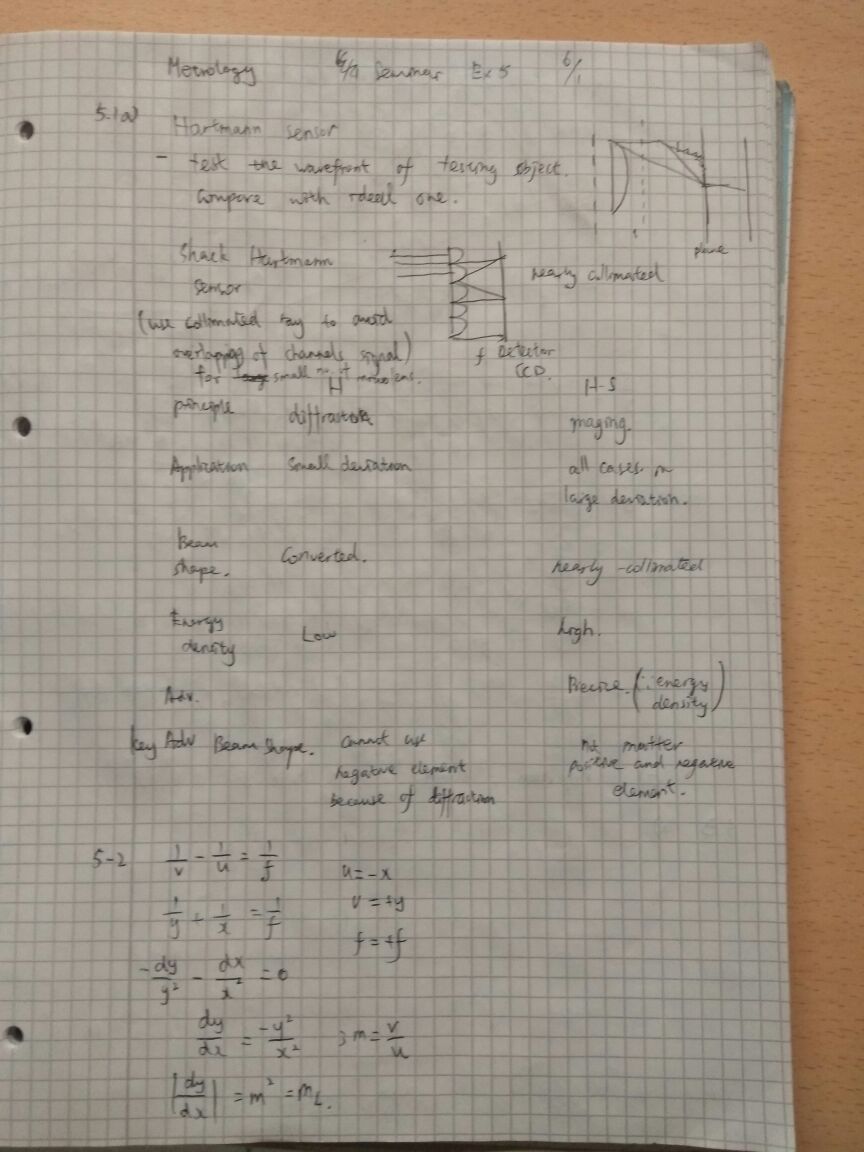 Metrology Seminar Ex 5 6/1
5-1a) Hartmann sensor
- test the wavefront of testing object.
Compare with ideell one.
plane
Shack Hartmann
sensor
nearly collimated
(use collimated ray to avoid
overlapping of channels signal)
for small no. of
f Detector
CCD.
H H-S
principle diffraction imaging.
Application Small deviation all cases in
large deviation.
Beam
shape. Converted. nearly-collimated
Energy
density Low high.
Adv. Precise. (∵ energy
density)
key Adv Beam shape. Cannot use
negative element
because of diffraction
not matter
positive and negative
element.
5-2 1/v - 1/u = 1/f
u = -x
v = +y
f = +f
1/y + 1/x = 1/f
-dy/y² - dx/x² = 0
dy/dx = -y²/x² ; m = v/u
|dy/dx| = m² = m_L.